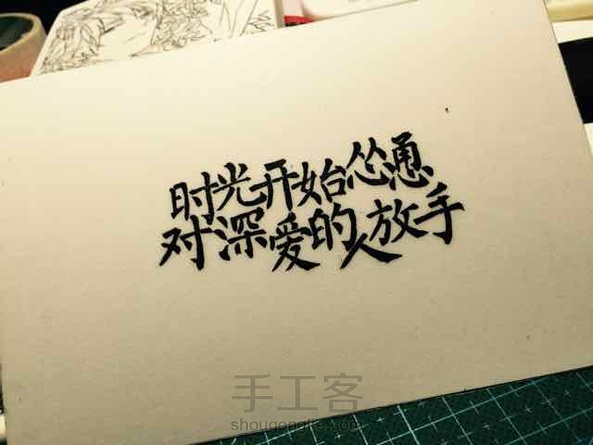 时光开始怂恿
对深爱的人放手
手工客
shougongke.com